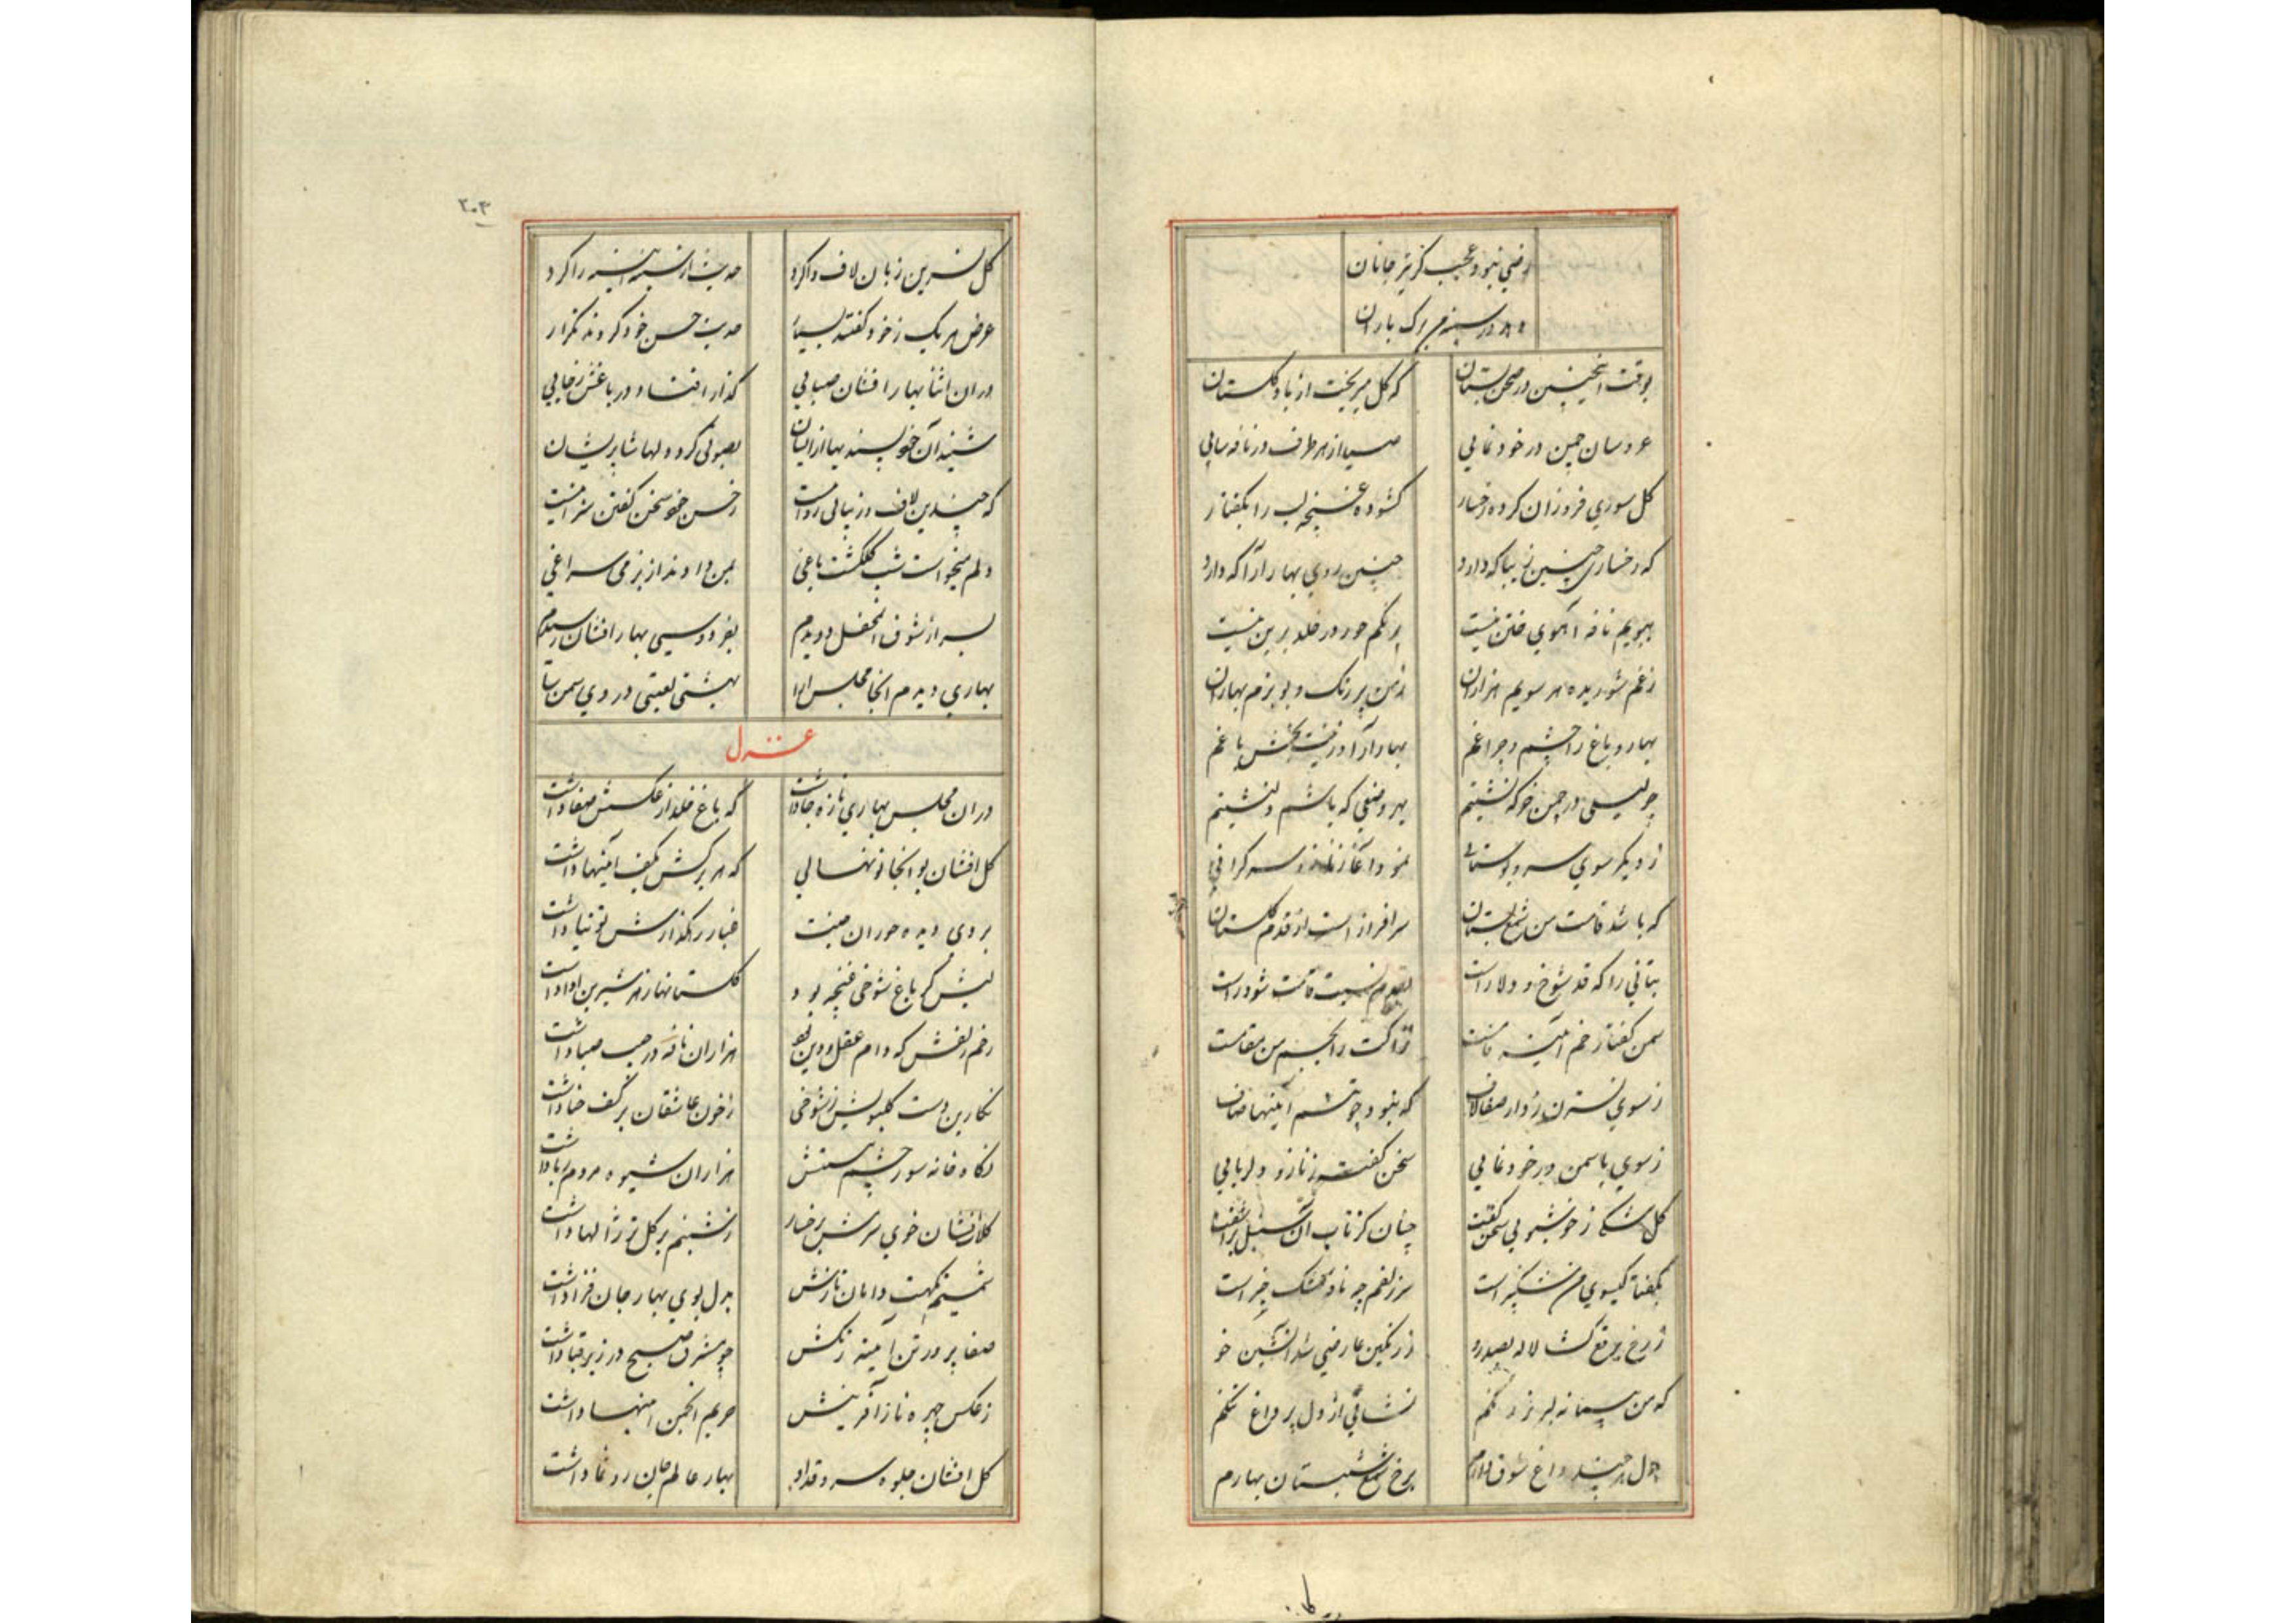 رفیق نبود عجب کزیز جانان
در سینه‌ام برک باران
بوقت اینچنین در صحن بستان
که کل میریخت از باد کلستان
عروسان چمن در خود نمایی
صبا از هر طرف در نافه سایی
کل سوری فروزان کرده رخسار
کشوده غنچه لب را بکفتار
که رخساری چنین زیبا که دارد
چنین روی بهار آرا که دارد
ببویم نافه آهوی ختن نیست
برنکم حور در خلد برین نیست
ز غم شوریده هر سویم هزاران
ز من پر رنک و بو بزم بهاران
بهار و باغ را چشم و چراغم
بهار آرا و زینت بخش باغم
چو لیلی در چمن خرکه نشینم
بهر وضعی که باشم دلنشینم
ز دیکر سوی سرو بوستانی
نمود آغاز ناز و سرکرانی
که باشد قامت من شمع بستان
سرافراز است از قدم کلستان
بتانی را که قد شوخ و دلاراست
بقدم نسبت قامت شود راست
سمن کفتا رخم آیینه فامست
نزاکت را بجسم من مقامست
ز سوی نسترن زد از صفا لاف
که نبود چون تنم آیینها صاف
ز سوی یاسمن در خود نمایی
سخن کفت از ناز و دلربایی
کل مشکی ز خوشبویی سخن کفت
چنان کز تاب آن سنبل برآشفت
بکفتا کیسوی من مشکبیز است
سر زلفم چو ناف مشک خیز است
ز رخ برقع کشا لاله بصد رو
ز رنکین عارضی شد آتشین خو
که من پیمانه لبریز رنکم
نشانی از دل پر داغ
بدل هر چند داغ شوق دارم
برخ شمع شبستان بهارم
۲۰۳
کل نسرین زبان لاف واکرد
حدیث از سینه آیینه را کرد
غرض هر یک ز خود کفتند بسیار
حدیث حسن خود کردند تکرار
در آن اثنا بهار افشان صبایی
کذار افتاد در باغش ز جایی
شنید آن خودپسندیها از ایشان
بصوتی کرد دلها شان پریشان
که چندین لاف در زیبایی روا نیست
ز حسن خود سخن کفتن سزا نیست
دلم میخواست شب کلکشت باغی
بمن دادند از بزمی سراغی
بسر از شوق آن محفل دویدم
بفردوسی بهار افشان رسیدم
بهاری دیدم آنجا مجلس آرا
بهشتی لعبتی در روی سمن سا
غزل
در آن مجلس بهاری تازه جا داشت
که باغ خلد از عکسش صفا داشت
کل افشان بود آنجا نونهالی
که هر برکش بکف آیینها داشت
بروی دیده حوران جنت
غبار رهکذارش توتیا داشت
لبش کز باغ شوخی غنچه بود
کلستانها ز هر شیرین ادا داشت
خم زلفش که دام عقل و دین بود
هزاران نافه در جیب صبا داشت
نکارین دست کلبویش ز شوخی
ز خون عاشقان بر کف حنا داشت
نکاه خانه سوز چشم مستش
هزاران شیوه مردم ربا داشت
کل افشان خوی سرشن بر رخسار
ز شبنم بر کل تر ژالها داشت
شمیم نکهت دامان نازش
بدل بوی بهار جان فزا داشت
صفا پرور تن آیینه رنکش
چو مشرق صبح در زیر قبا داشت
ز عکس چهره ناز آفرینش
حریم انجمن آیینها داشت
کل افشان جلوه سرو قد او
بهار عالم جان رونما داشت